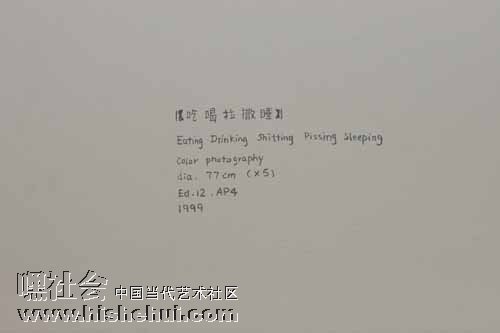 【吃喝拉撒睡】
Eating Drinking Shitting Pissing Sleeping
Color photography
dia. 77cm (×5)
Ed.12. AP4
1999
嘿社会 中国当代艺术社区
www.hishehui.com